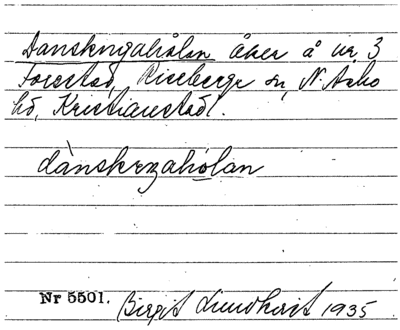 Danskingahölan åker å nr 3
Forestad, Riseberga sn, N. Åsbo
hd, Kristianstad l.
dànskıngahölan
Nr 5501. Birgit Lundkvist 1935